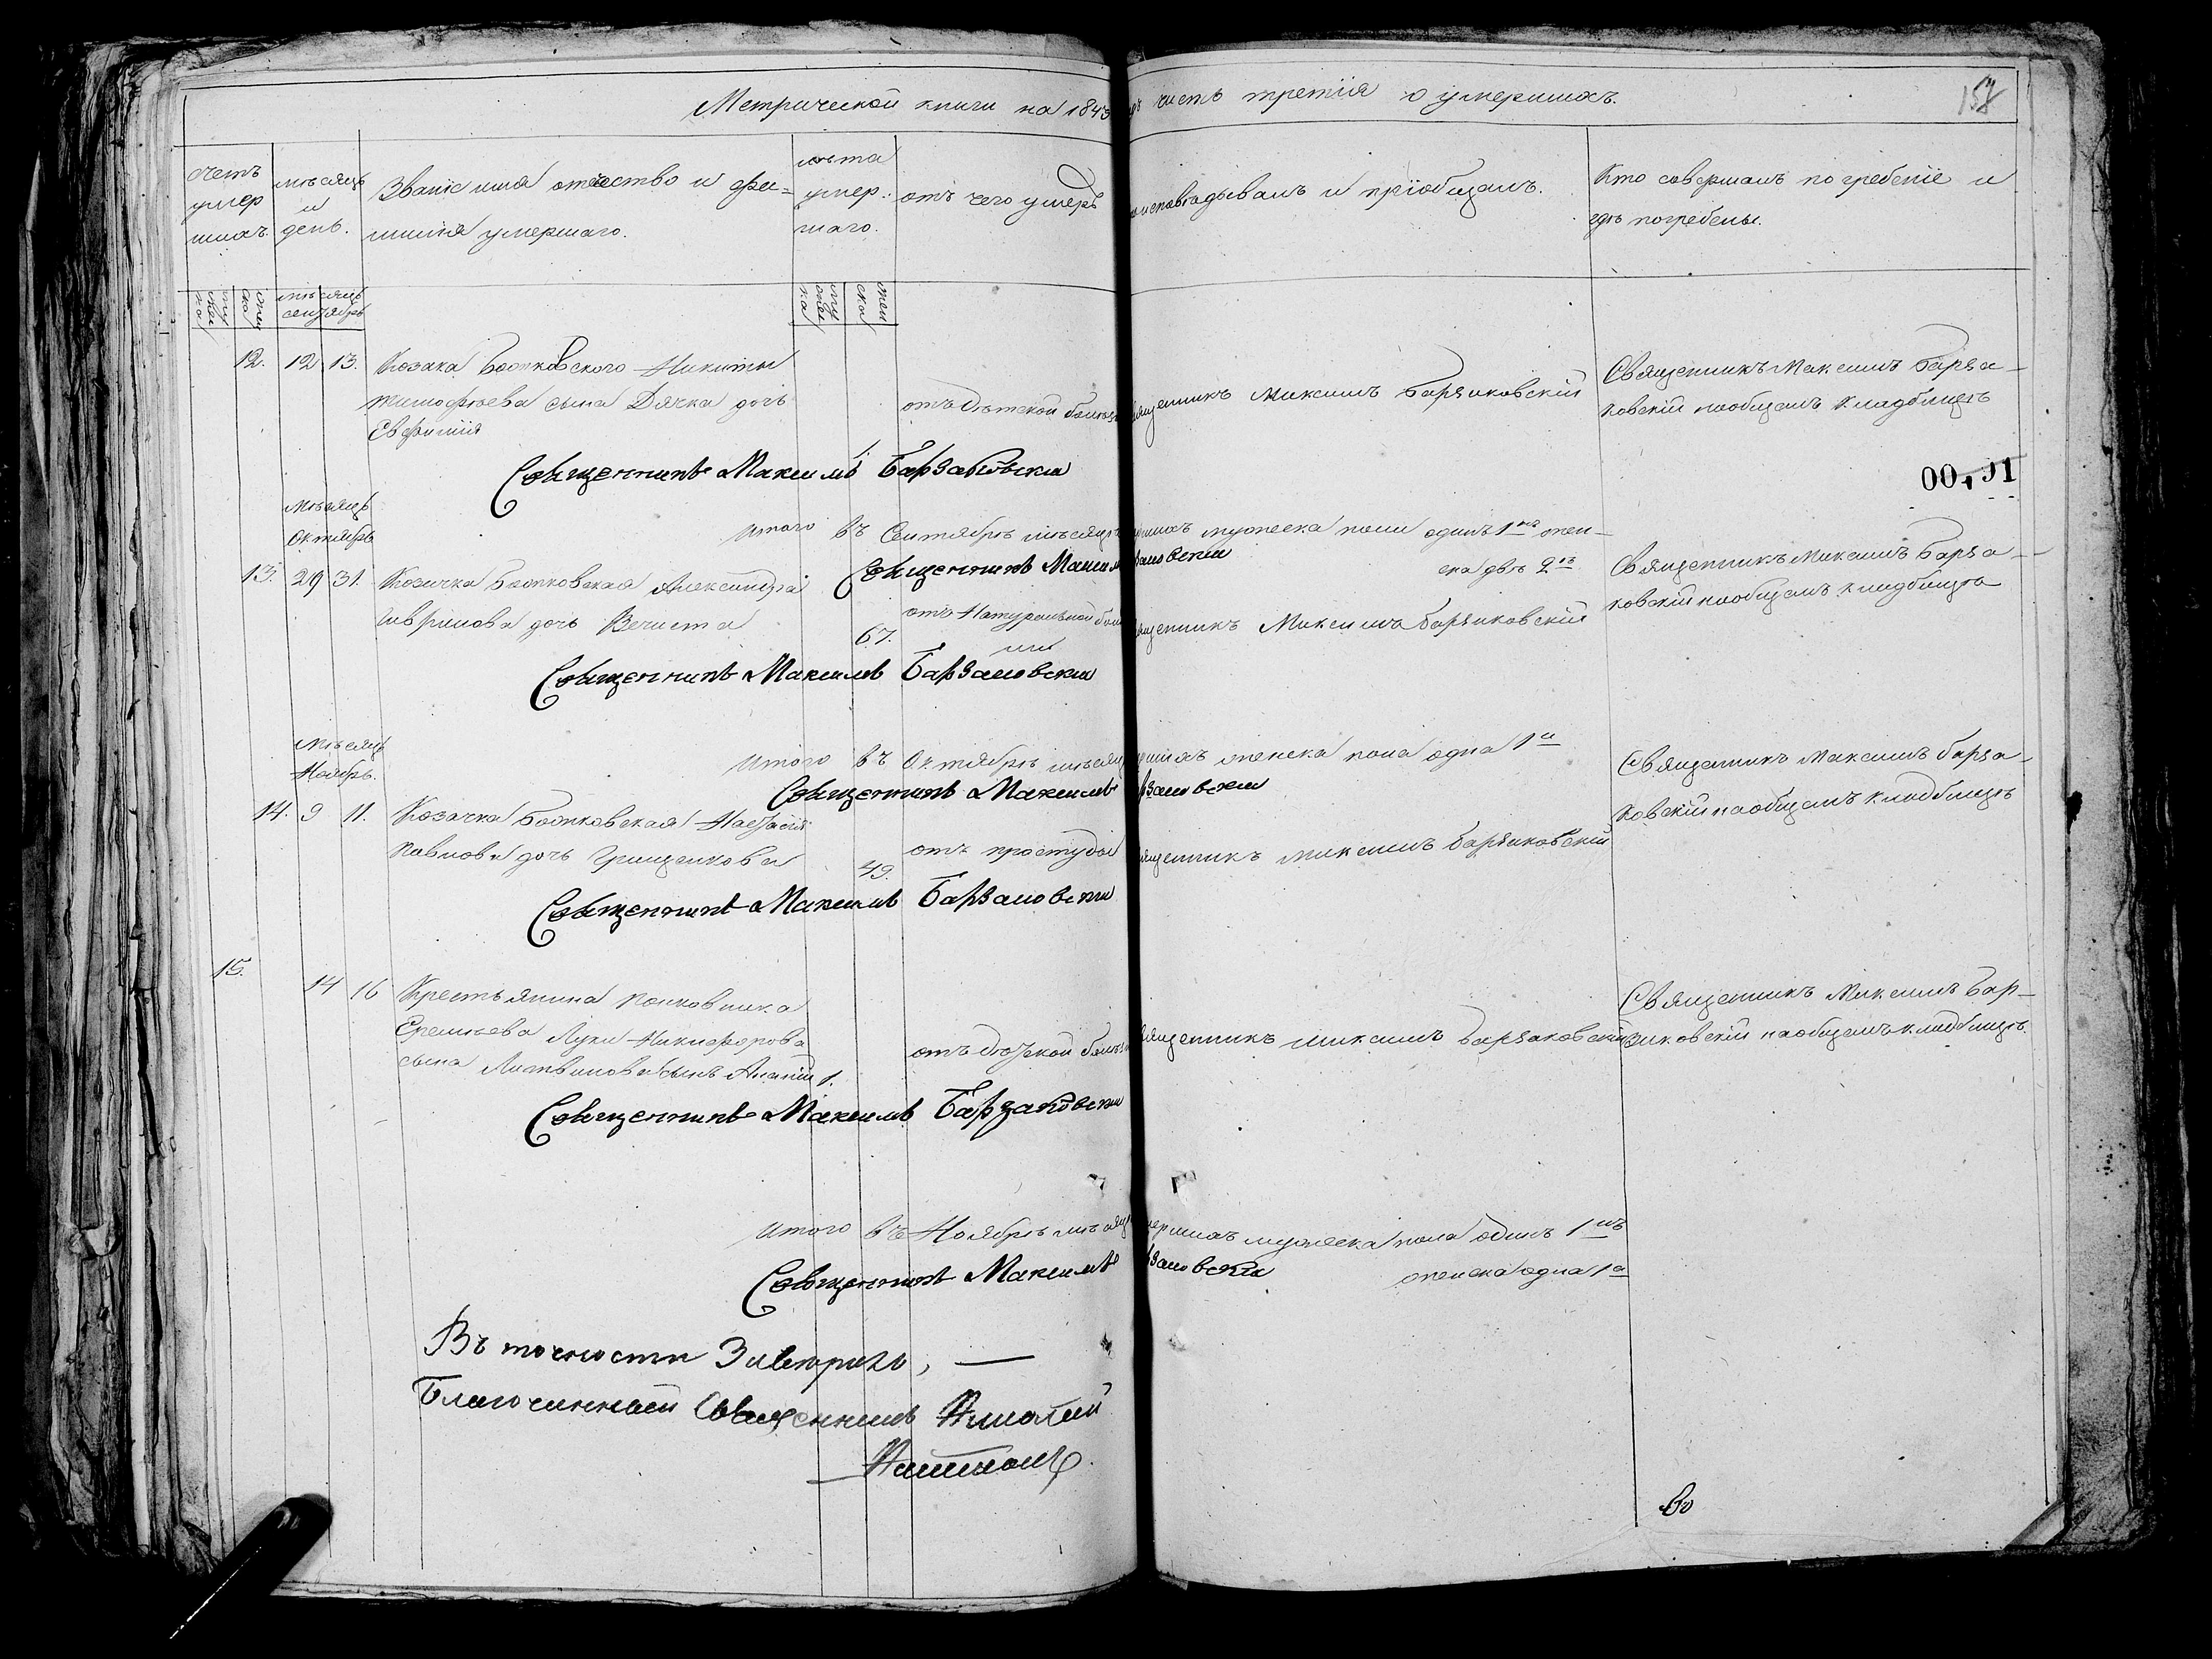 Метрической книги на 1843 часть третїя о умершихъ.
157
счетъ умершихъ.
мѣсяцъ и день.
Званїе имя отчество и фамилїя умершаго.
лѣта умершаго.
отъ чего умеръ
исповѣдывалъ и прїобщалъ.
Кто совершалъ погребенїе и
гдѣ погребены.
мужеска
женска
мѣсяцъ
сентябрь
мужеска
женска
12. 12 13. Козака Боопковского Никиты
Тимофѣева сына Дячка дочь
Евфимія
1.
отъ дѣтской болѣз
священникъ Максимъ Барзаковскій
Священникъ Максимъ Барза-
ковскій на общемъ кладбищѣ
Священникъ Максимъ Барзаковскій
00191
итого въ Сентябрѣ мѣсяцѣ умершихъ мужеска пола одинъ 1 жен-
ска двѣ 2
Священникъ Максимъ Барзаковскій
мѣсяцъ
Октябрь
13. 29 31. Козачка Боопковская Александра
Гаврилова дочь
67.
отъ Натуральной бо
священникъ Максимъ Барзаковскій
Священникъ Максимъ Барза-
ковскій на общемъ кладбищѣ
Священникъ Максимъ Барзаковскій
итого въ Октябрѣ мѣсяцѣ умершихъ женска пола одна 1а
Священникъ Максимъ Барзаковскій
Мѣсяцъ
Ноябрь.
14. 9 11. Козачка Боопковская Настасія
Павлова дочь Грищенкова
49.
отъ простуды
священникъ Максимъ Барзаковскій
Священникъ Максимъ Барза-
ковскій на общемъ кладбищѣ
Священникъ Максимъ Барзаковскій
15. 14 16 Крестьянина полковника
Еремѣева Луки Никифорова
сына Литвинова сынъ Ананій 1.
отъ дѣтской болѣз
священникъ Максимъ Барзаковскій
Священникъ Максимъ Бар-
заковскій на общемъ кладбищѣ.
Священникъ Максимъ Барзаковскій
итого въ Ноябрѣ мѣсяцѣ умершихъ мужеска пола одинъ 1нъ
женска одна 1а
Священникъ Максимъ Барзаковскій
Въ точности
Благочинный Священникъ